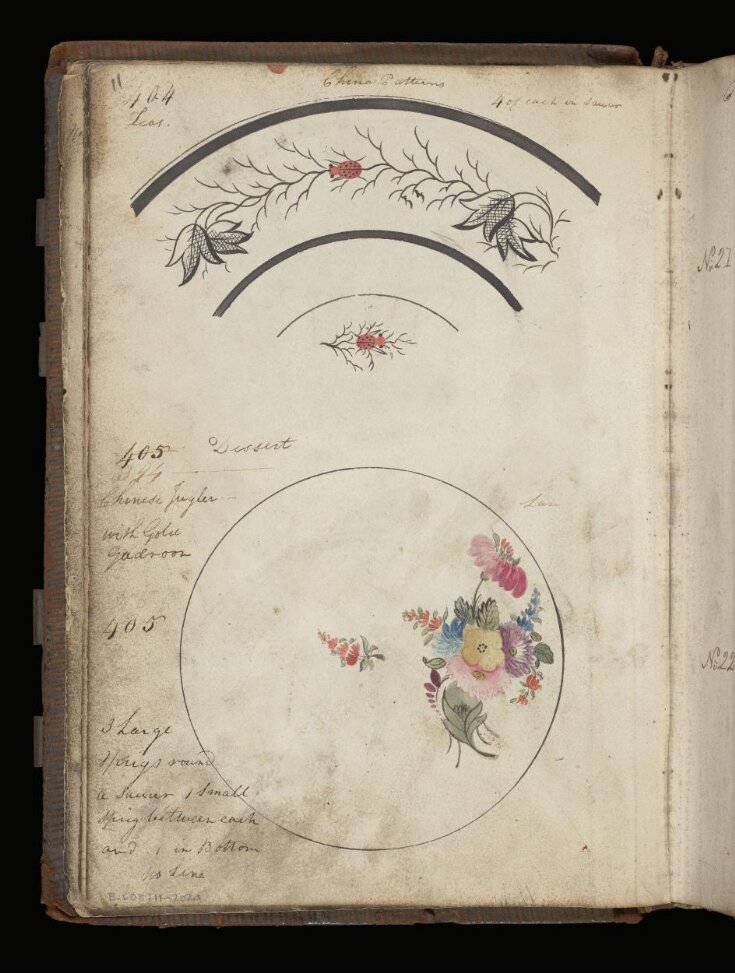 11
404
China Patterns
4 of each in Saucer
Teas.
405
Dessert
394
Chinese Jugler
with Gold
Gadroon
405
3 Large
Sprigs round
a Saucer 1 Small
Sprig between each
and 1 in Bottom
No Line
No. 21
No. 22